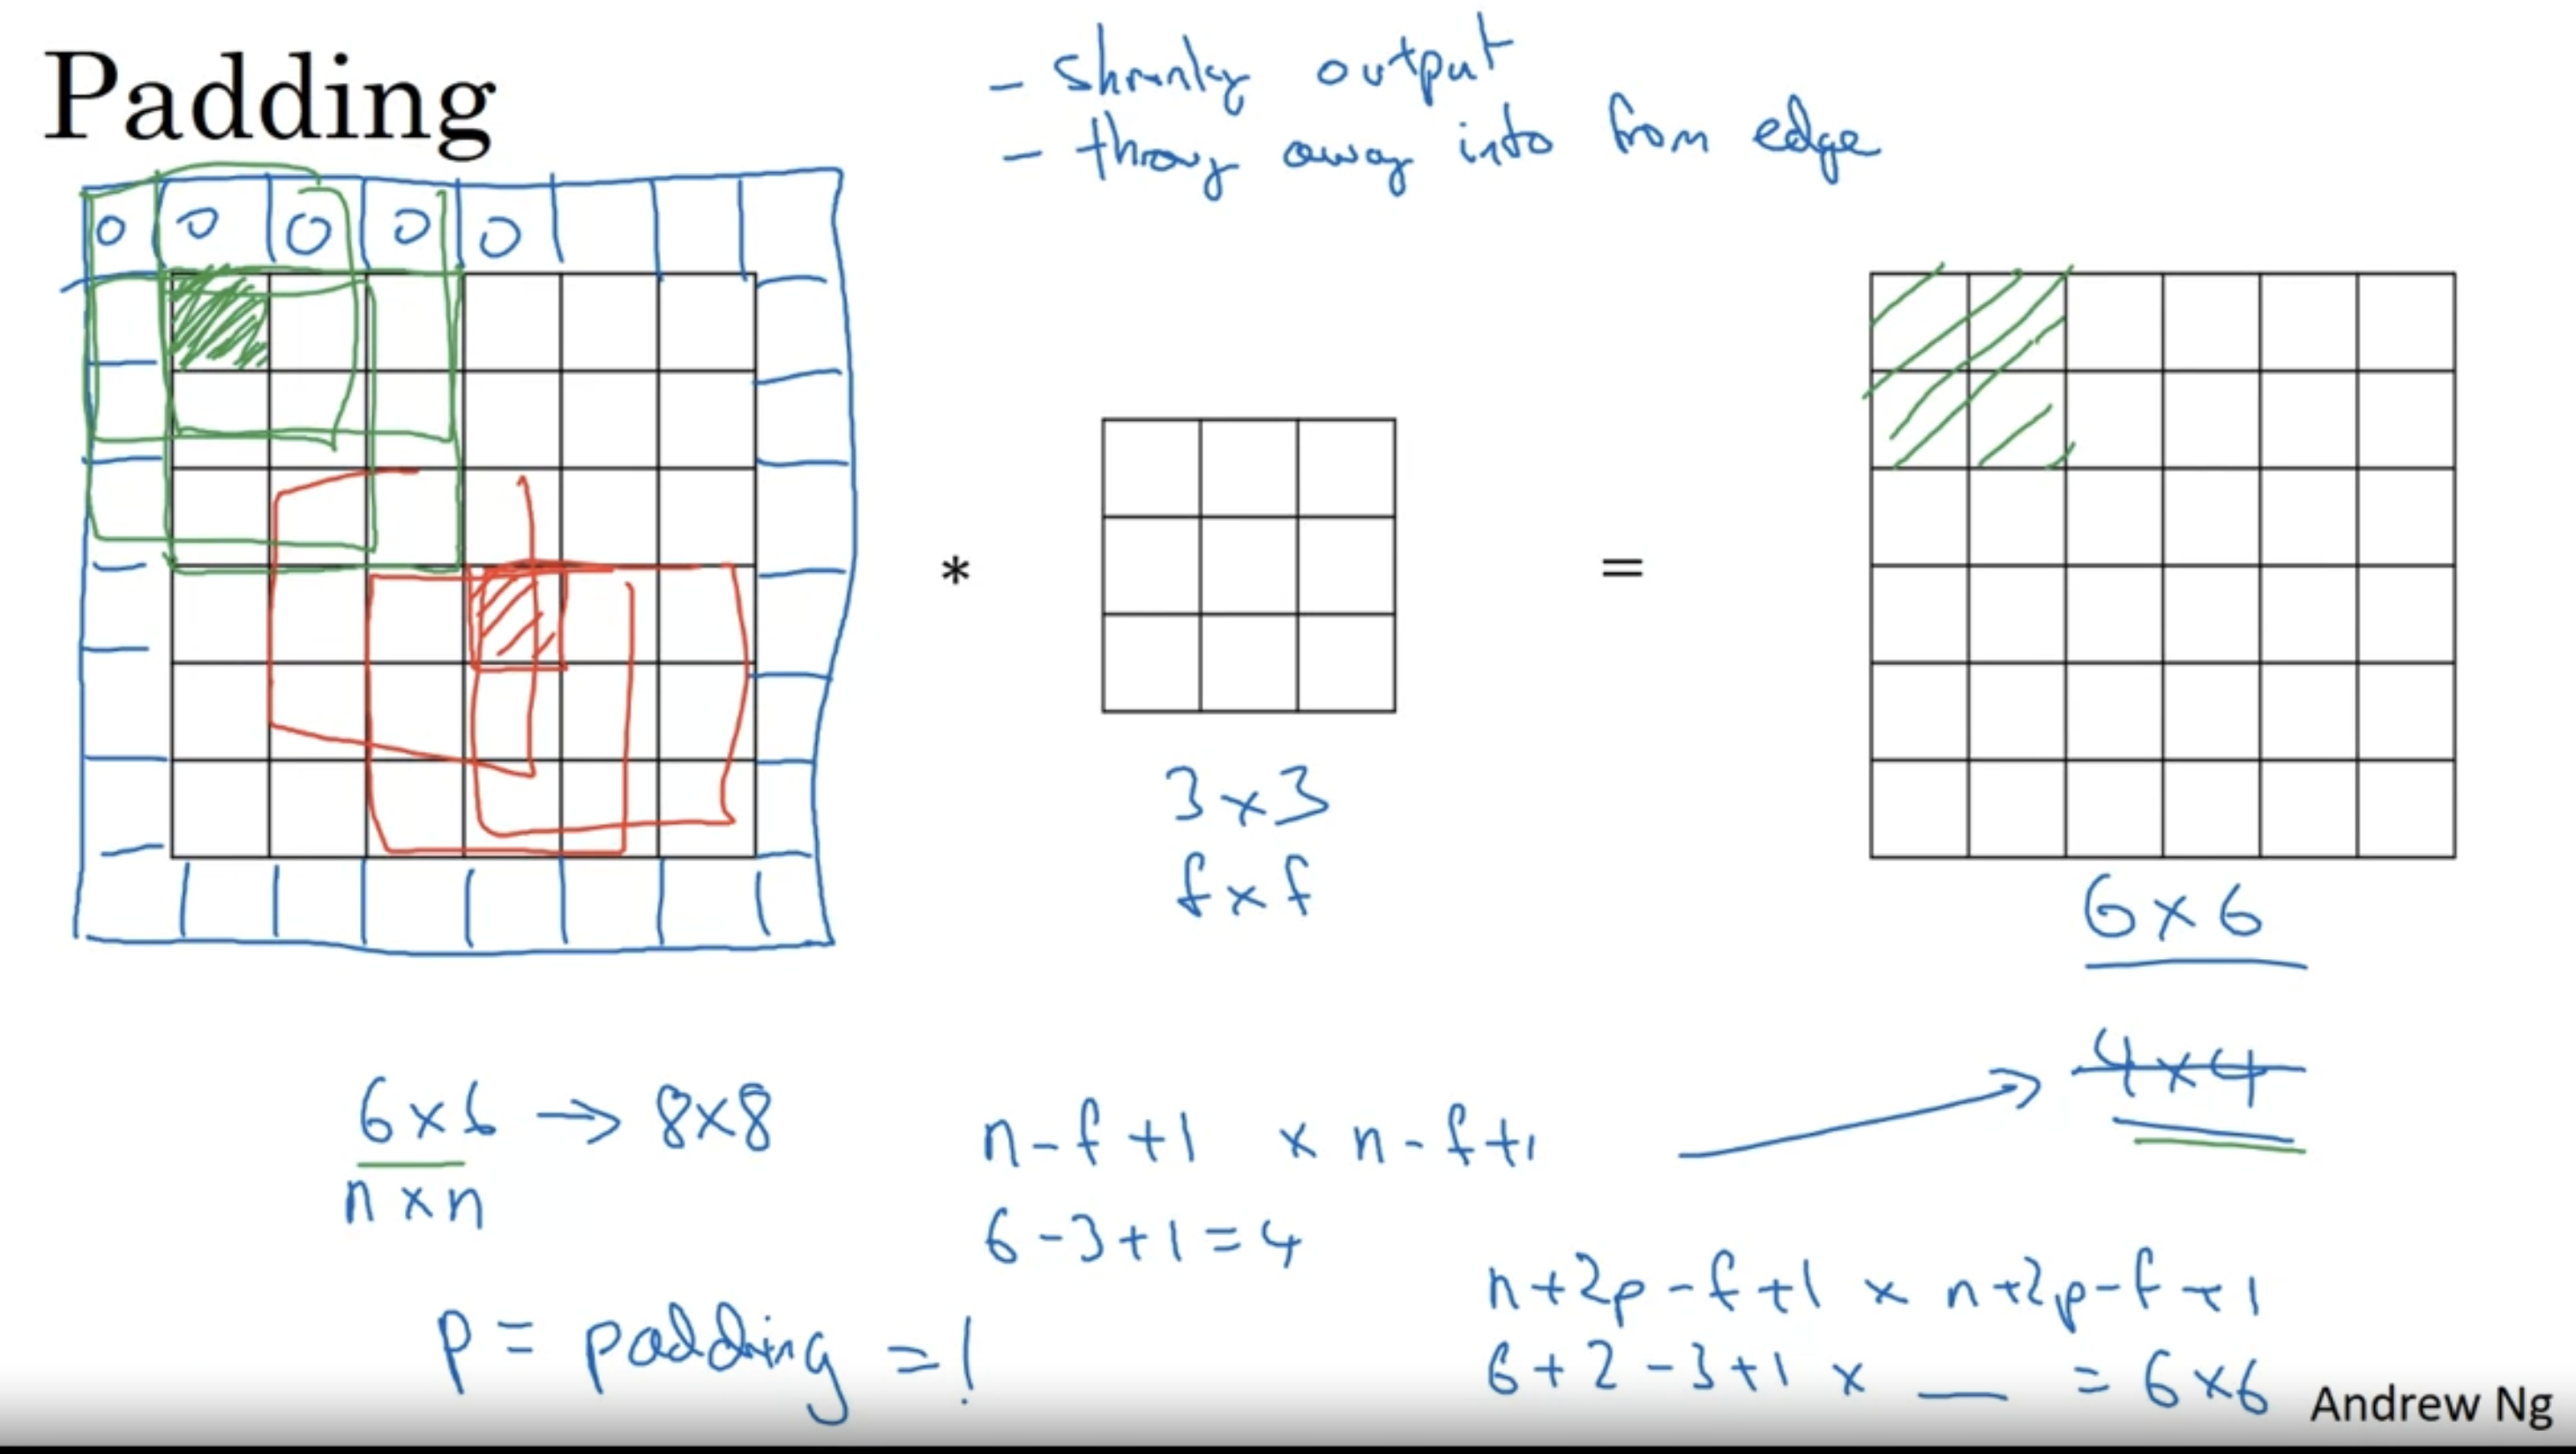 Padding
- shrinky output
- throwy away info from edge
0 0 0 0 0
*
=
3 x 3
f x f
6 x 6
4 x 4
6 x 6 → 8x8
n x n
n - f + 1 x n - f + 1
6 - 3 + 1 = 4
p = padding = 1
n + 2p - f + 1 x n + 2p - f + 1
6 + 2 - 3 + 1 x __ = 6 x 6
Andrew Ng